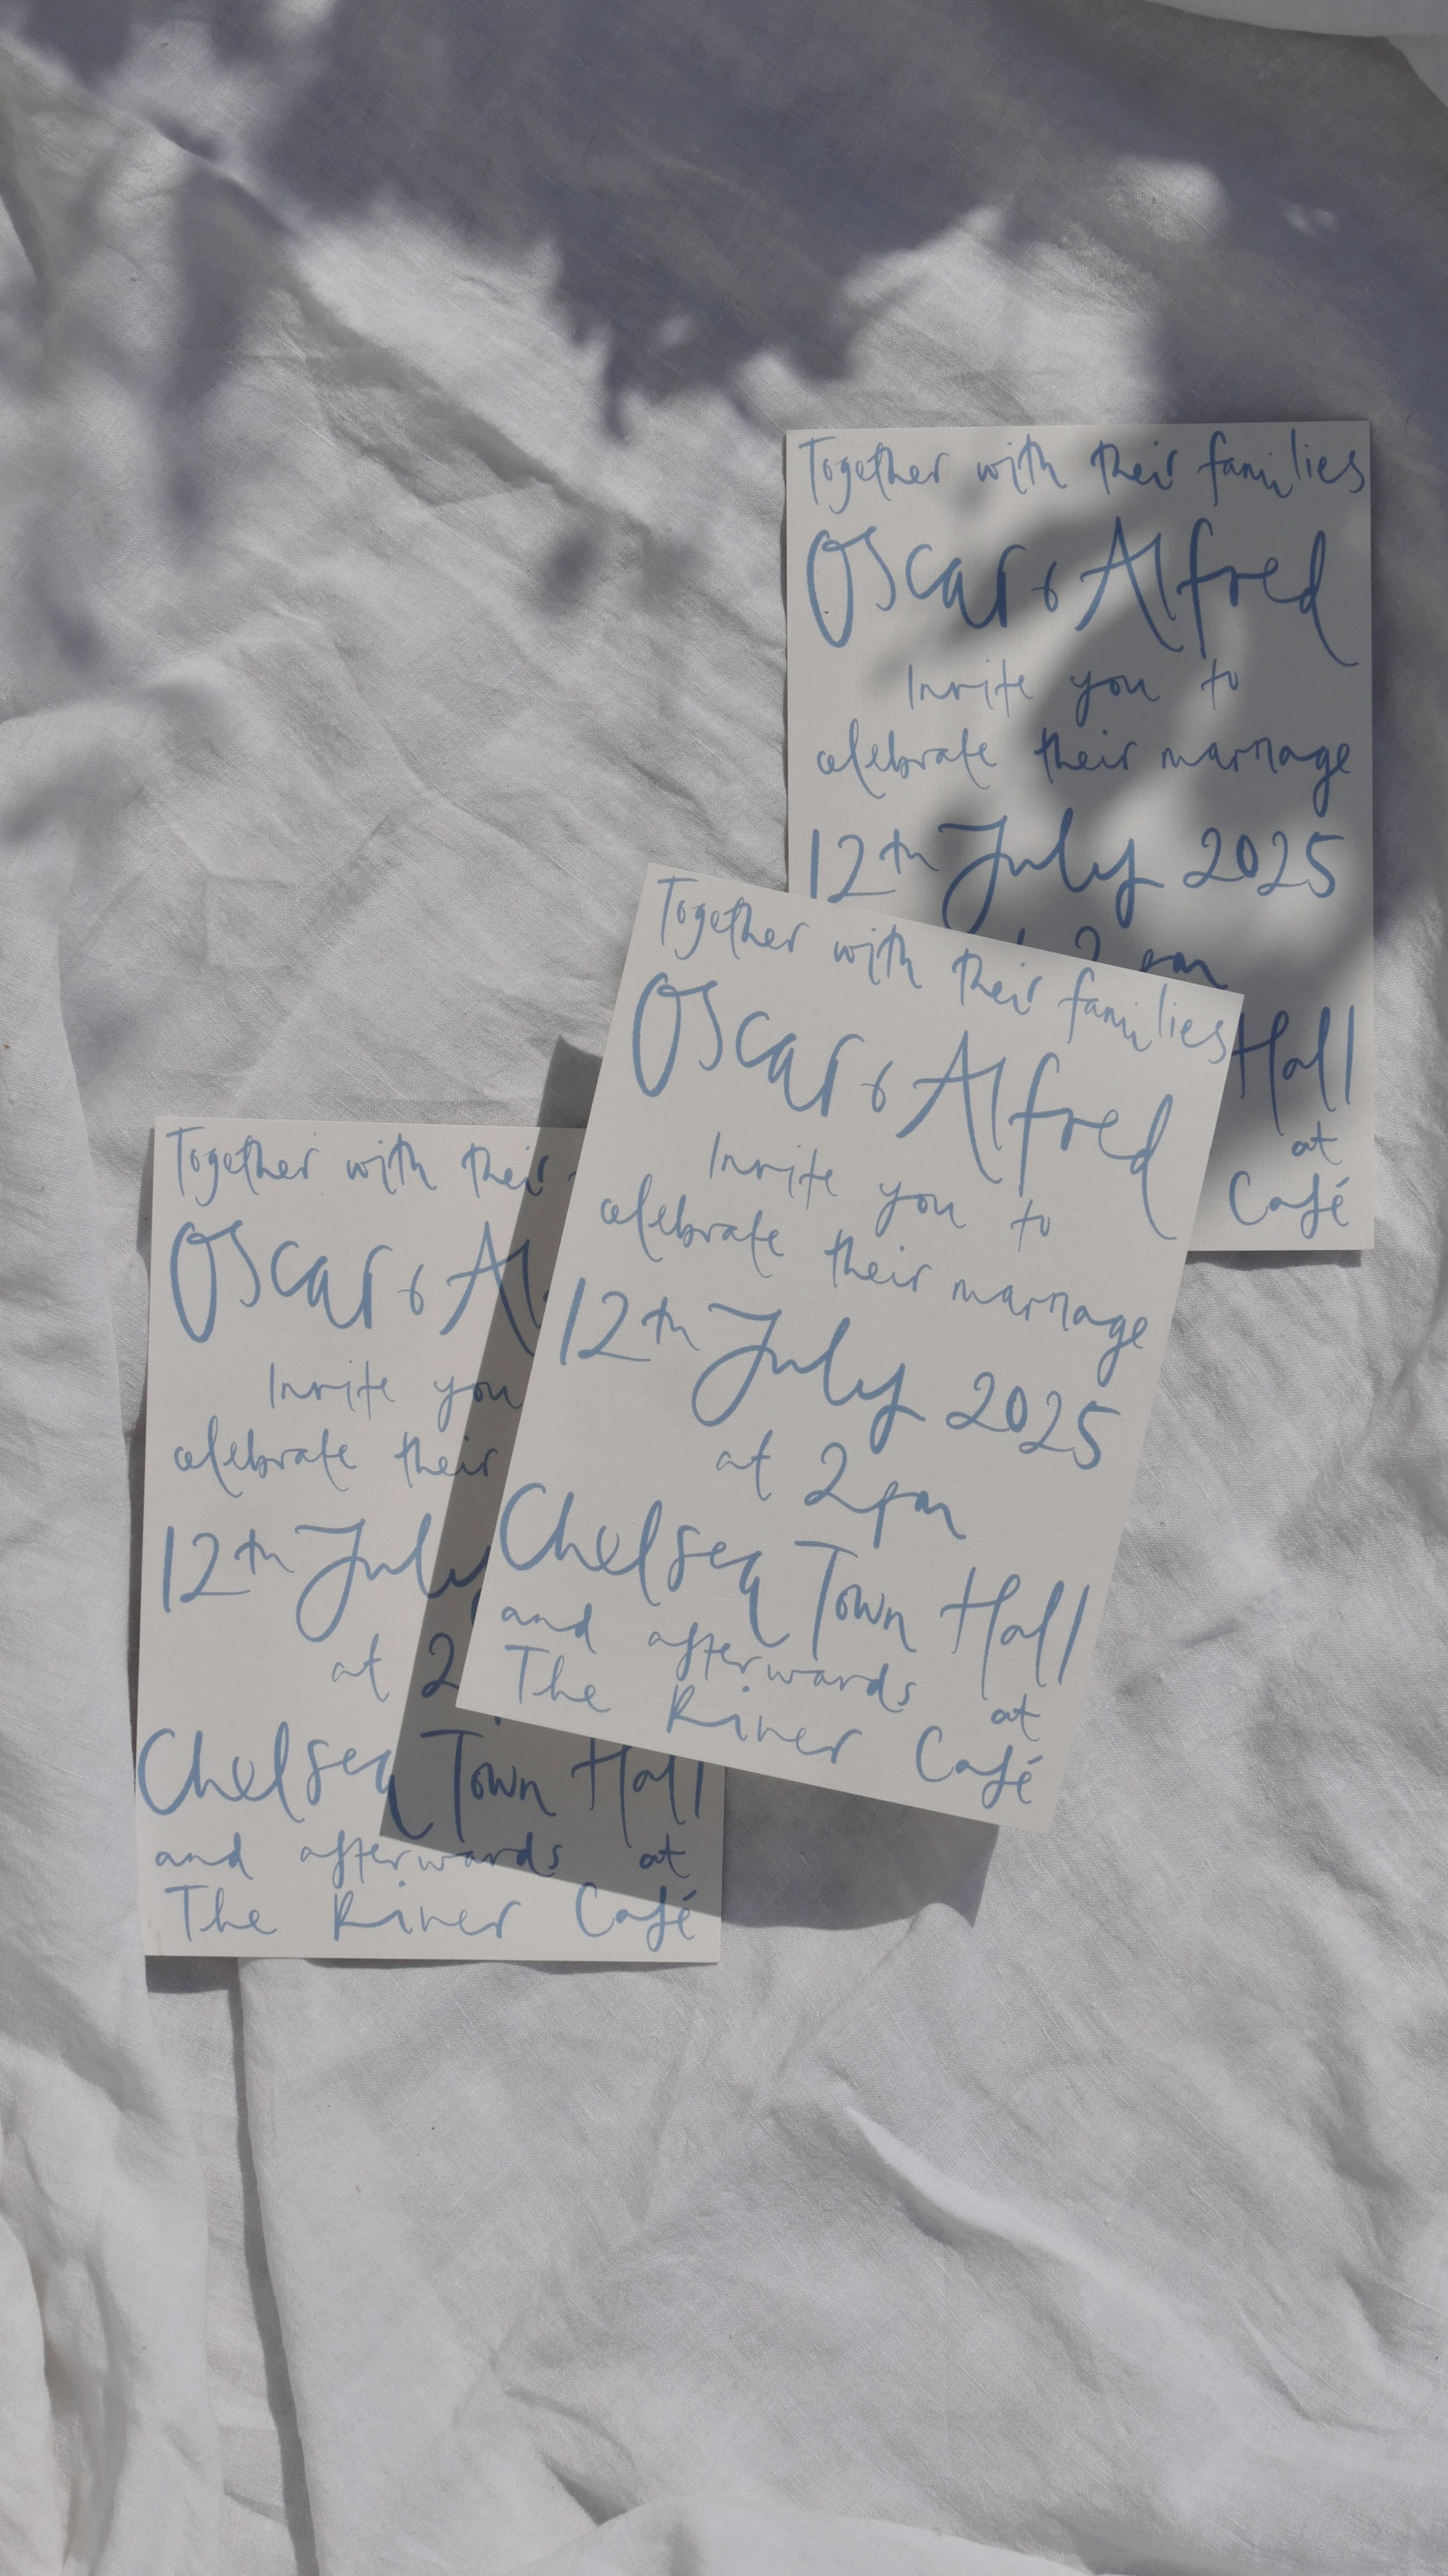 Together with their families
Oscar & Alfred
Invite you to
celebrate their marriage
12th July 2025
2pm
Hall
at
Café
Together with their families
Oscar & Alfred
Invite you to
celebrate their marriage
12th July 2025
at 2pm
Chelsea Town Hall
and afterwards at
The River Café
Together with their
Oscar & Al
Invite you
celebrate their
12th July
at 2
Chelsea Town Hall
and afterwards at
The River Café